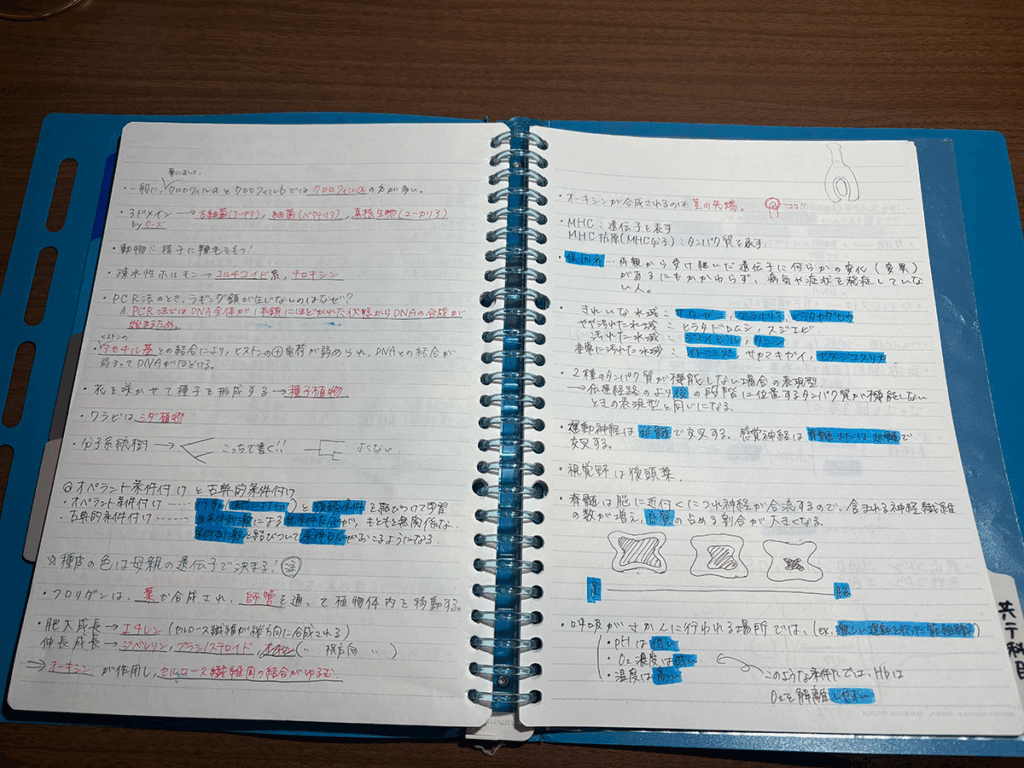 ・一般に、クロロフィルaとクロロフィルbではクロロフィルaの方が多い。
・3ドメイン → 古細菌(アーキア), 細菌(バクテリア), 真核生物(ユーカリア)
by ウーズ
・動物は精子に鞭毛をもつ!
・疎水性ホルモン→コルチコイド系, チロキシン
・PCR法のとき、ラギング鎖が生じないのはなぜ?
PCR法ではDNA全体が1本鎖にほどかれた状態からDNAの合成が
始まるため。
ヒストンの
・アセチル基との結合により、ヒストンの⊕電荷が弱められ、DNAとの結合が
弱まってDNAがほどける。
・花を咲かせて種子を形成する→種子植物
・ワラビはシダ植物
・分子系統樹 → こっちで書く!! よくない
◎オペラント条件付けと古典的条件付け
・オペラント条件付け …… と を結びつけて学習
・古典的条件付け …… になる が、もともと無関係な
と結びついて がおこるようになる。
※種皮の色は母親の遺伝子で決まる!
・フロリゲンは、葉で合成され、師管を通って植物体内を移動する。
・肥大成長→エチレン (セルロース繊維が縦方向に合成される)
伸長成長→ジベレリン, ブラシノステロイド (〃 横方向 〃)
⇒オーキシンが作用し、セルロース繊維間の結合がゆるむ.
・オーキシンが合成されるのは茎の先端. ココ!!
・MHC:遺伝子を表す
MHC抗原(MHC分子):タンパク質を表す.
・保因者…両親から受け継いだ遺伝子に何らかの変化(変異)
があるにもかかわらず、病気や症状を発症していな
い人。
・きれいな水域: サワガニ, , ヒラタカゲロウ
やや汚れた水域:ヒラタドロムシ, スジエビ
汚れた水域: シマイシビル, タニシ
非常に汚れた水域: イトミミズ, サカマキガイ, セスジユスリカ
・2種のタンパク質が機能しない場合の表現型
→伝達経路のより後の段階に位置するタンパク質が機能しない
ときの表現型と同じになる。
・運動神経は延髄で交叉する。感覚神経は脊髄または延髄で
交叉する。
・視覚野は後頭葉.
・脊髄は脳に近付くにつれ神経が合流するので、含まれる神経繊維
の数が増え、白質の占める割合が大きくなる.
尾 脳
・呼吸がさかんに行われる場所では、(ex.激しい運動を行った筋細胞)
・pHは低い
・O₂濃度は低い
・温度は高い
このような条件下では、Hbは
O₂を解離しやすい
共テ科目